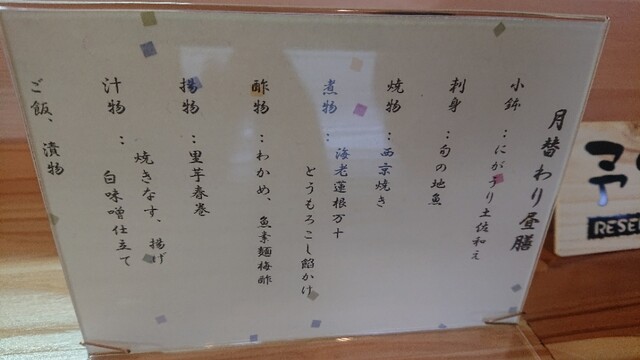 月替わり昼膳
小鉢 ：にがうり土佐和え
刺身 ：旬の地魚
焼物 ：西京焼き
煮物 ：海老蓮根万十
とうもろこし餡かけ
酢物 ：わかめ、魚素麺梅酢
揚物 ：里芋春巻
汁物 ：焼きなす、揚げ
白味噌仕立て
ご飯、漬物